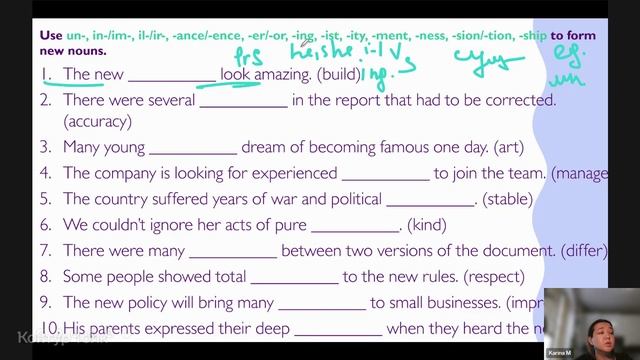 Use un-, in-/im-, il-/ir-, -ance/-ence, -er/-or, -ing, -ist, -ity, -ment, -ness, -sion/-tion, -ship to form
new nouns.
1. The new __________ look amazing. (build)
2. There were several __________ in the report that had to be corrected.
(accuracy)
3. Many young __________ dream of becoming famous one day. (art)
4. The company is looking for experienced __________ to join the team. (manage
5. The country suffered years of war and political __________. (stable)
6. We couldn't ignore her acts of pure __________. (kind)
7. There were many __________ between two versions of the document. (differ)
8. Some people showed total __________ to the new rules. (respect)
9. The new policy will bring many __________ to small businesses. (impr
10. His parents expressed their deep __________ when they heard the ne
Karina M